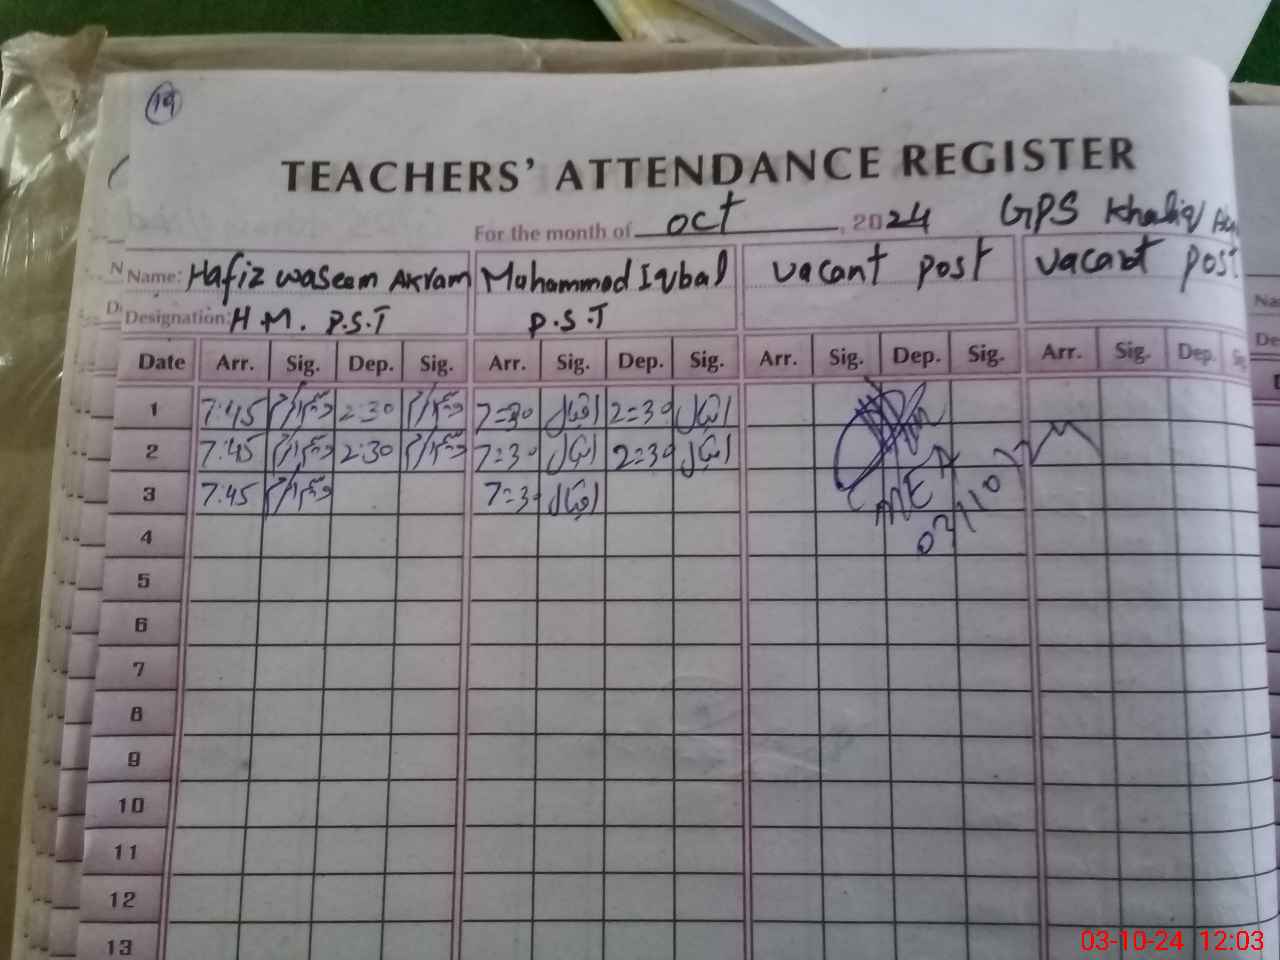 19
TEACHERS' ATTENDANCE REGISTER
For the month of oct, 2024 GPS Khaliq
Name: Hafiz Waseem Akram Muhammad Iqbal vacant post vacant post
Designation: H.M. P.S.T P.S.T
Date Arr. Sig. Dep. Sig. Arr. Sig. Dep. Sig. Arr. Sig. Dep. Sig. Arr. Sig. Dep.
1 7:45 2:30 7=30 اقبال 2=30 اقبال
2 7:45 2:30 7=30 اقبال 2=30 اقبال
3 7:45 7=30 اقبال
MEA
4
5
6
7
8
9
10
11
12
13
03-10-24 12:03